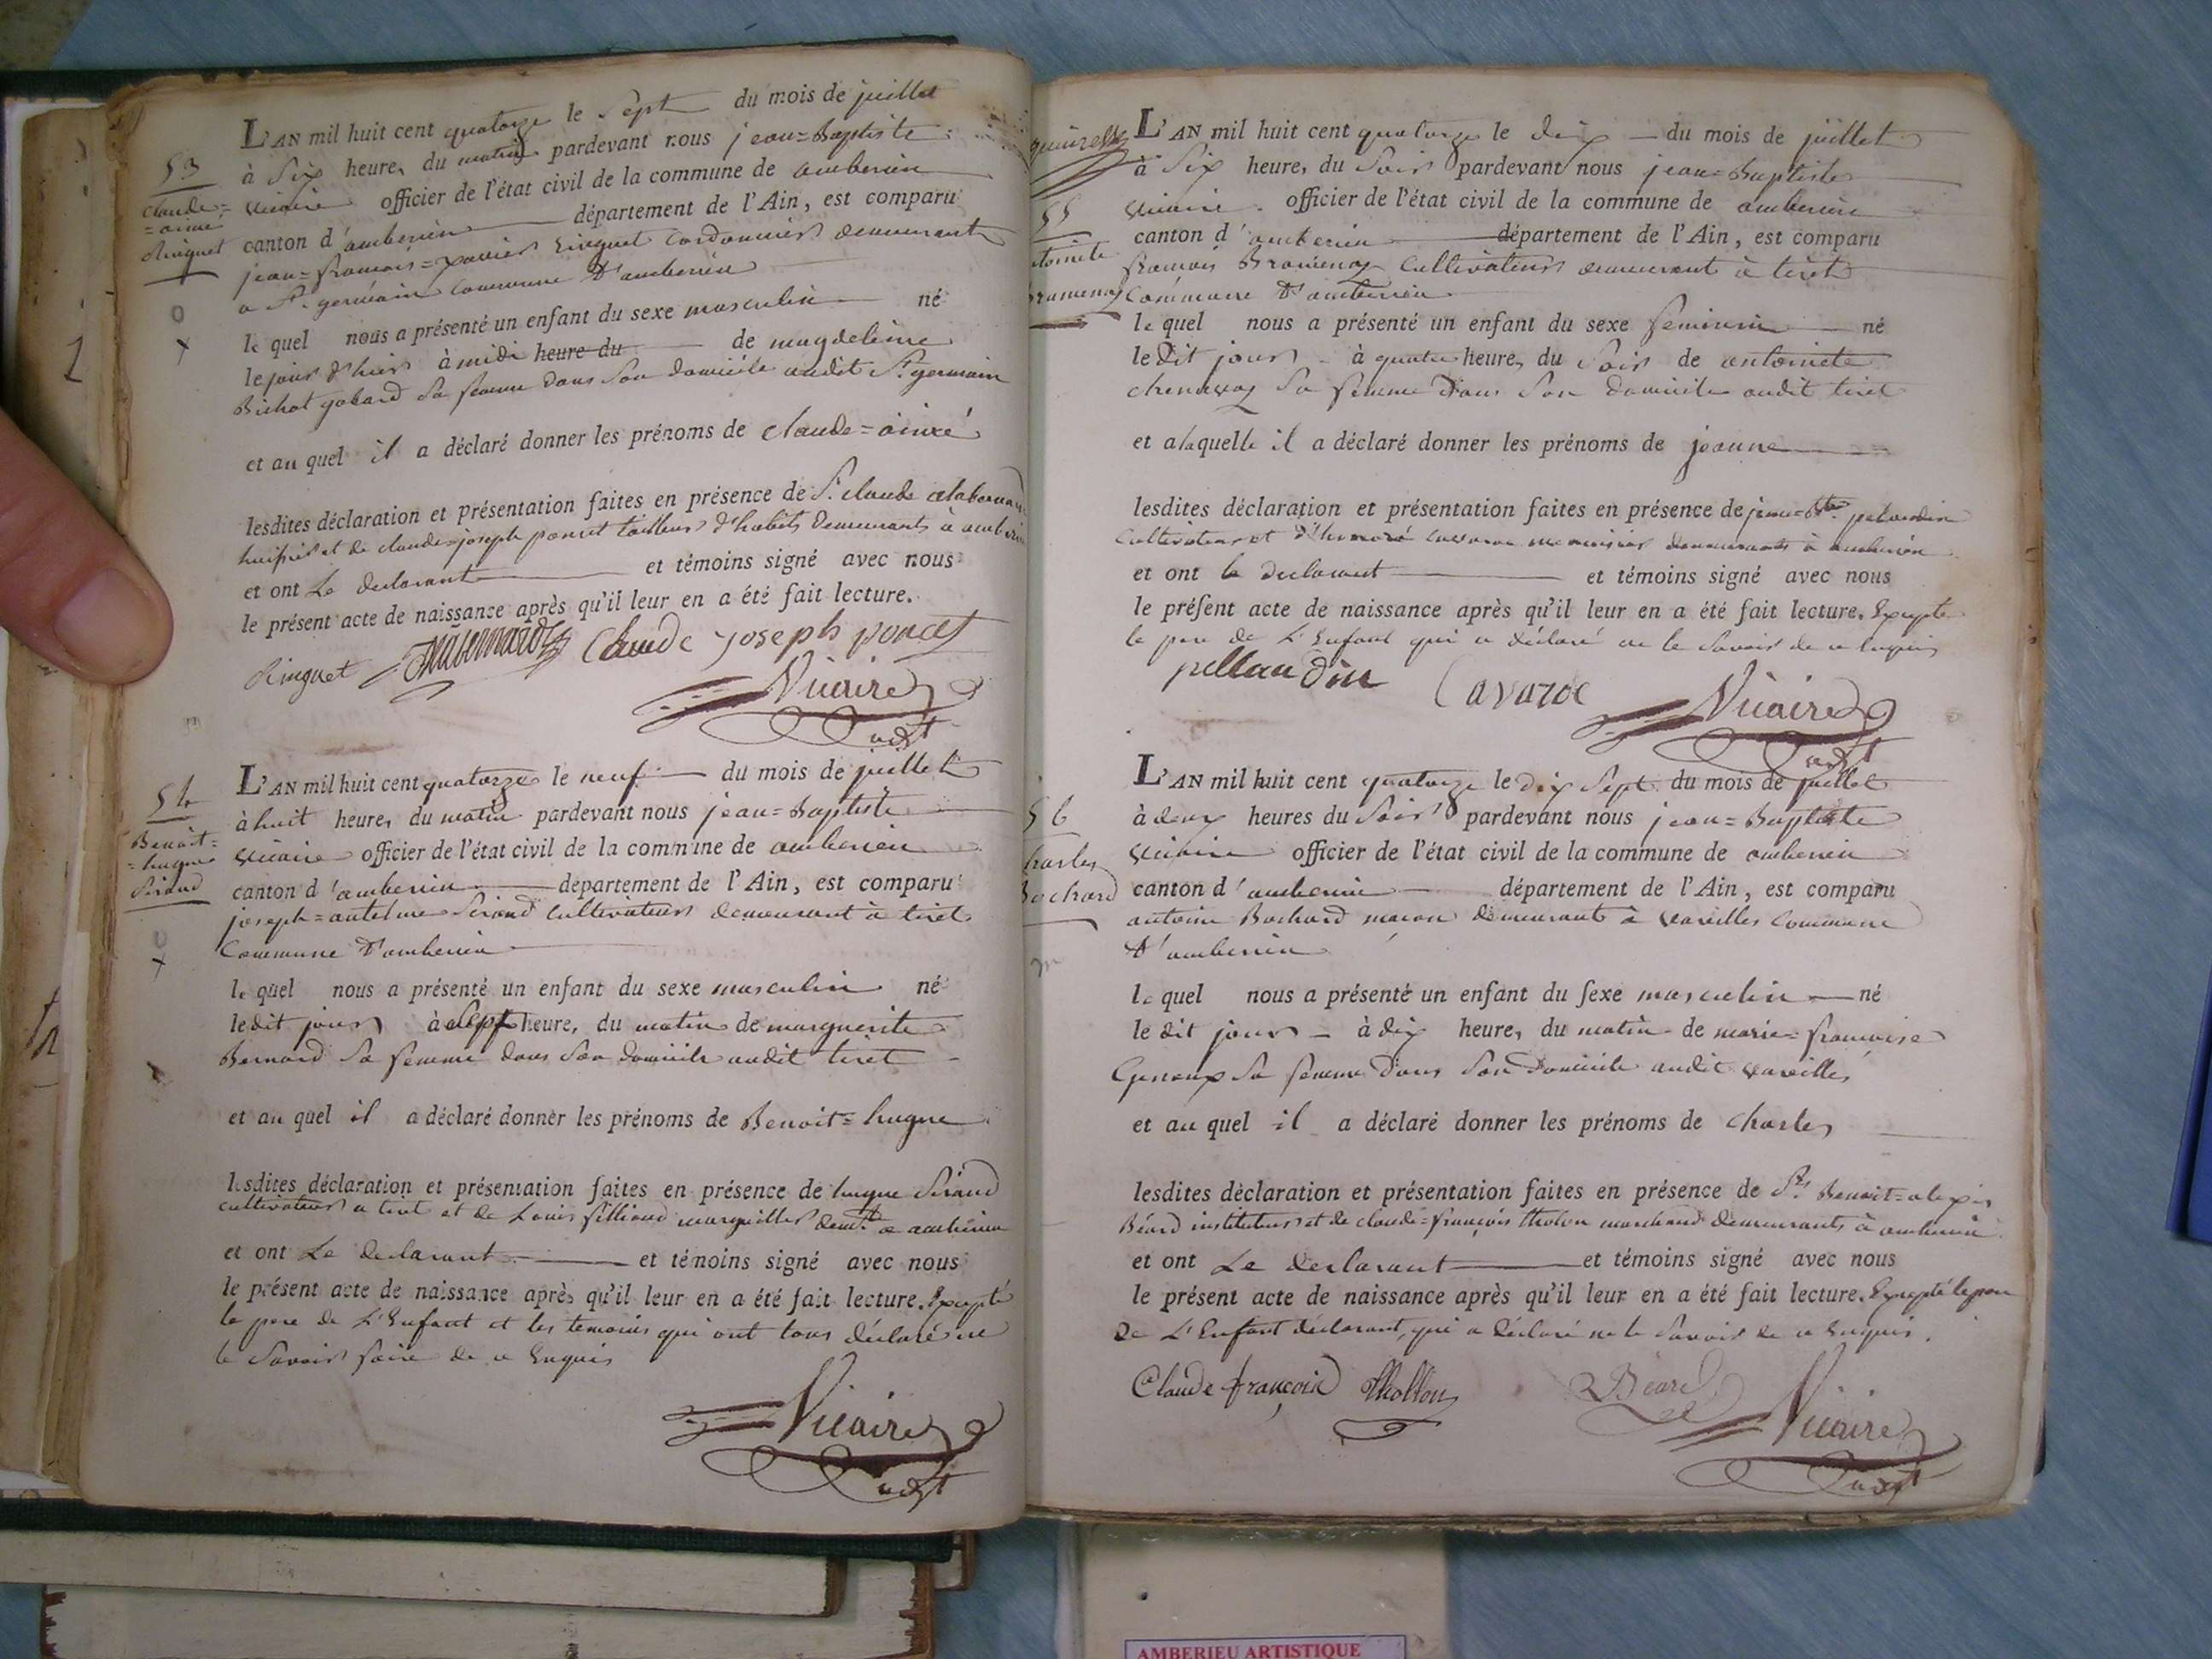 53
claude=
=aimé
Ringuet
L'AN mil huit cent quatorze le Sept du mois de juillet
à Six heures du matin pardevant nous jean=Baptiste
Vicaire officier de l'état civil de la commune de amberieu
canton d'amberieu département de l'Ain, est comparu
jean=francois=xavier Ringuet Cordonnier demeurant
a St. germain Commune d'amberieu
le quel nous a présenté un enfant du sexe masculin né
le jour d'hier à midi heure du de magdeleine
Bichat gobard Sa femme dans Son domicile audit St. germain
et au quel il a déclaré donner les prénoms de claude=aimé
lesdites déclaration et présentation faites en présence de Sr. claude
huissier et de claude=joseph poncet tailleur d'habits demeurants à
et ont Le declarant et témoins signé avec nous
le présent acte de naissance après qu'il leur en a été fait lecture.
Ringuet Claude joseph poncet
Vicaire
adjt
54
Benoit=
=hugue
Siraud
L'AN mil huit cent quatorze le neuf du mois de juillet
à huit heures du matin pardevant nous jean=Baptiste
Vicaire officier de l'état civil de la commune de amberieu
canton d'amberieu département de l'Ain, est comparu
joseph=antelme Siraud cultivateur demeurant à tiret
Commune d'amberieu
le quel nous a présenté un enfant du sexe masculin né
ledit jour à sept heures du matin de marguerite
Bernard Sa femme dans Son domicile audit tiret
et au quel il a déclaré donner les prénoms de Benoit=hugue
lesdites déclaration et présentation faites en présence de hugue Siraud
cultivateur a tiret et de Louis filliaud marguillier demt. a amberieu
et ont Le declarant et témoins signé avec nous
le présent acte de naissance après qu'il leur en a été fait lecture. Excepté
le pere de L'Enfant et les temoins qui ont tous déclaré ne
le Savoir faire de ce Enquis
Vicaire
adjt
55
L'AN mil huit cent quatorze le dix du mois de juillet
à Six heures du Soir pardevant nous jean=Baptiste
Vicaire officier de l'état civil de la commune de amberieu
canton d'amberieu département de l'Ain, est comparu
francois Bramenay Cultivateur demeurant à tiret
Commune d'amberieu
le quel nous a présenté un enfant du sexe feminin né
le dit jour à quatre heures du Soir de antoinete
chenavay Sa femme dans Son domicile audit tiret
et a laquelle il a déclaré donner les prénoms de jeanne
lesdites déclaration et présentation faites en présence de jean=Bte. pelandin
Cultivateur et d'honoré cavaroc menuisier demeurants à amberieu
et ont le declarant et témoins signé avec nous
le présent acte de naissance après qu'il leur en a été fait lecture. Excepté
le pere de L'Enfant qui a déclaré ne le Savoir de ce Enquis
pellandin Cavaroc Vicaire
adjt
56
harles
Bochard
L'AN mil huit cent quatorze le dix Sept du mois de juillet
à deux heures du Soir pardevant nous jean=Baptiste
Vicaire officier de l'état civil de la commune de amberieu
canton d'amberieu département de l'Ain, est comparu
antoine Bochard macon demeurant à Vareilles Commune
d'amberieu
le quel nous a présenté un enfant du sexe masculin né
le dit jour à dix heures du matin de marie=francoise
Genoux Sa femme dans Son Domicile audit Vareilles
et au quel il a déclaré donner les prénoms de charles
lesdites déclaration et présentation faites en présence de Srs. Benoit=alexis
Béard instituteur et de claude=françois tholon marchand demeurants à amberieu
et ont Le declarant et témoins signé avec nous
le présent acte de naissance après qu'il leur en a été fait lecture. Excepté le pere
De L'Enfant déclarant, qui a déclaré ne le Savoir de ce Enquis.
Claude françois thollon Béard Vicaire
adjt
AMBERIEU ARTISTIQUE